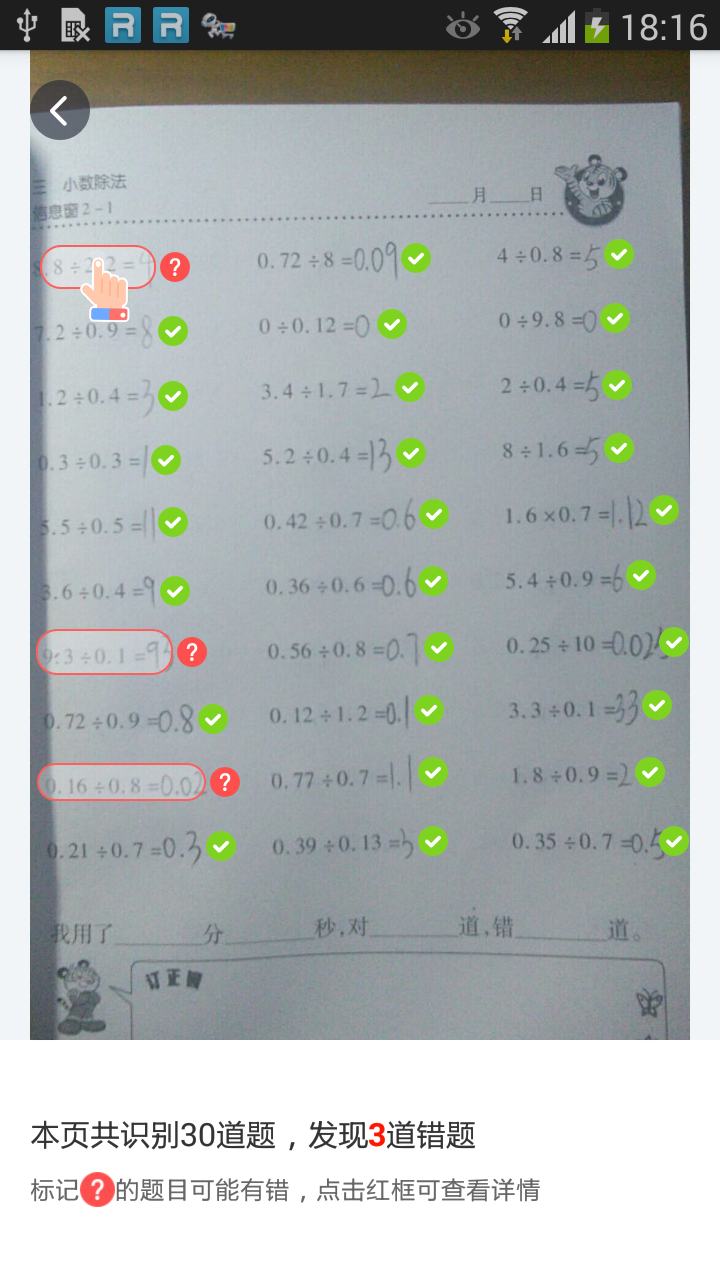 18:16
三 小数除法
信息窗2-1
____月____日
0.72÷8=0.09
4÷0.8=5
7.2÷0.9=8
0÷0.12=0
0÷9.8=0
1.2÷0.4=3
3.4÷1.7=2
2÷0.4=5
0.3÷0.3=1
5.2÷0.4=13
8÷1.6=5
5.5÷0.5=11
0.42÷0.7=0.6
1.6×0.7=1.12
3.6÷0.4=9
0.36÷0.6=0.6
5.4÷0.9=6
9.3÷0.1=
0.56÷0.8=0.7
0.25÷10=0.025
0.72÷0.9=0.8
0.12÷1.2=0.1
3.3÷0.1=33
0.16÷0.8=0.02
0.77÷0.7=1.1
1.8÷0.9=2
0.21÷0.7=0.3
0.39÷0.13=3
0.35÷0.7=0.5
我用了______分______秒,对______道,错______道。
订正园
本页共识别30道题，发现3道错题
标记?的题目可能有错，点击红框可查看详情